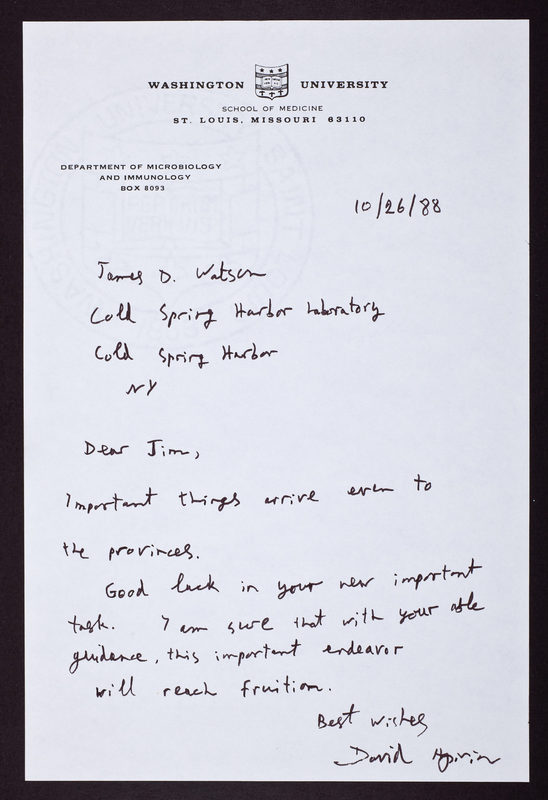 WASHINGTON UNIVERSITY
SCHOOL OF MEDICINE
ST. LOUIS, MISSOURI 63110
DEPARTMENT OF MICROBIOLOGY
AND IMMUNOLOGY
BOX 8093
10/26/88
James D. Watson
Cold Spring Harbor Laboratory
Cold Spring Harbor
NY
Dear Jim,
Important things arrive even to
the provinces.
Good luck in your new important
task. I am sure that with your able
guidance, this important endeavor
will reach fruition.
Best wishes
David Apirion